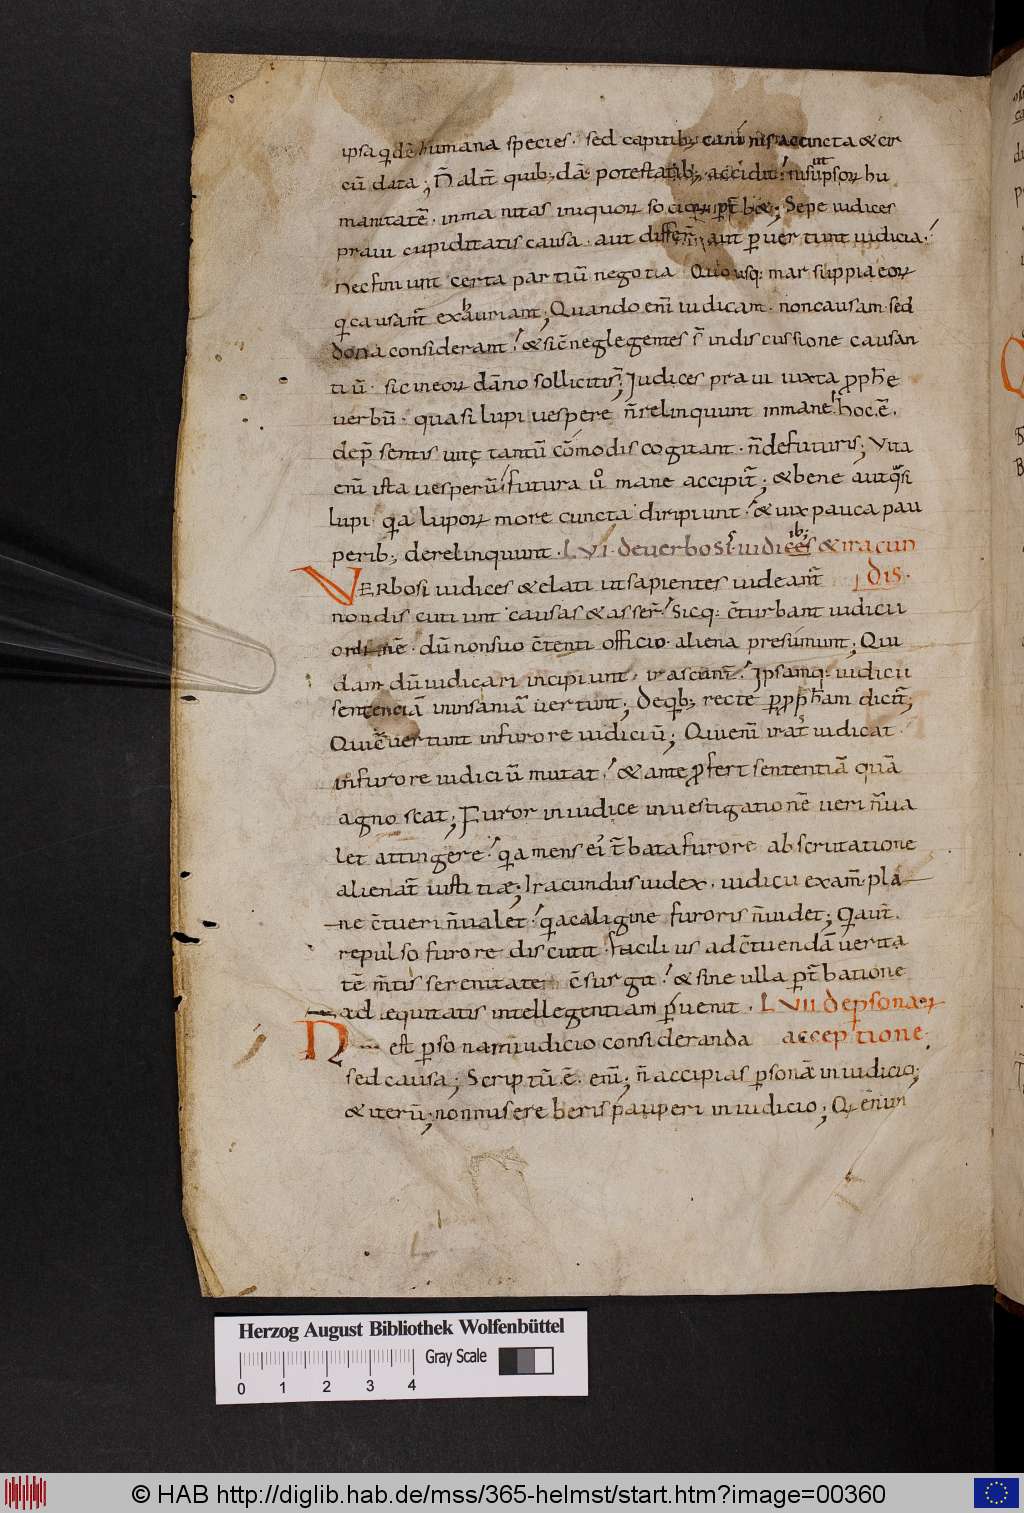 ipsa qdē humana species · sed capitib; caninis accincta & cir
cū data; N̄ alit̄ quib;dā potestatib; accidit! ut sūū ipsoꝝ hu
manitatē · inmanitas iniquoꝝ socioꝝ
Sepe iudices
praui cupiditatis causa · aut differ̄ aut puertunt iudicia ·
nec finiunt certa partiū negotia Quousq: marsuppia eoꝝ
qi causant̄ exhauriant; Quando eni iudicant · non causam sed
dona considerant! & sic neglegentes s̄ in discussione causan
tiū · sic in eoꝝ dāno solliciti s̄; Iudices praui iuxta ꝓphe
uerbū · quasi lupi uespere n̄ relinquunt in mane! hoc ē ·
de p̄sentis uitę tantū cōmodis cogitant · n̄ de futuris; Vita
eni ista uesperū! futura u° mane accipit̄; & bene aut q̄si
lupi · qa lupoꝝ more cuncta diripiunt! & uix pauca pau
perib; derelinquunt · LVI · de uerbosi s̄ iudicib; & iracun
dis ·
VERbosi iudices & elati ut sapientes uideant̄
non discutiunt causas & asser̄! Sicq: c̄turbant iudicii
ordinē · dū non suo c̄tenti officio · aliena presumunt; Qui
dam dū iudicari incipiunt, irascunt̄! Ipsamq: iudicii
sentenciā in insaniā uertunt; De qb; recte p ꝓphetam dicit̄;
Qui uertunt in furore iudiciū; Qui eni irat̄ iudicat ·
in furore iudiciū mutat! & ante ꝓfert sententiā quā
agnoscat; Furor in iudice inuestigationē ueri n̄ ua
let attingere! qa mens ei t̄bata furore ab scrutatione
alienat̄ iustitiæ; Iracundus iudex · iudicii exam̄ pla
ne c̄tueri n̄ ualet! qa caligine furoris n̄ uidet; Q aut̄
repulso furore discutit · facilius ad c̄tuendā uerita
tē m̄tis serenitate c̄surgit! & sine ulla pt̄batione
ad equitatis intellegentiam puenit · LVII De psonaꝝ
acceptione ·
N̄ est psona in iudicio consideranda
sed causa; Scriptū · ē · eni; n̄ accipias psonā in iudicio;
& iterū; non misereberis pauperi in iudicio; Q enim
Herzog August Bibliothek Wolfenbüttel
Gray Scale
0 1 2 3 4
© HAB http://diglib.hab.de/mss/365-helmst/start.htm?image=00360